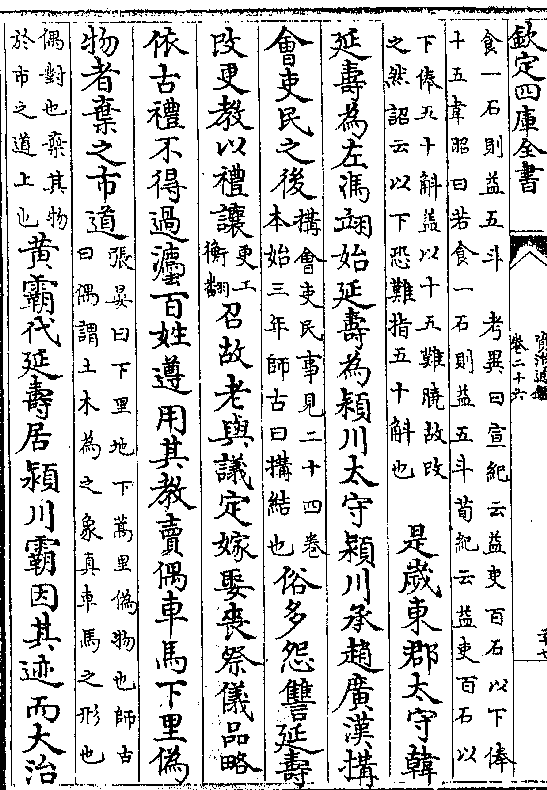 欽定四庫全書
資治通鑑
卷二十六
食一石則益五斗 考異曰宣紀云益吏百石以下俸
十五韋昭曰若食一石則益五斗荀紀云益吏百石以
下俸五十斛蓋以十五難曉故改
之然詔云以下恐難指五十斛也
是歲東郡太守韓
延壽為左馮翊始延壽為潁川太守潁川承趙廣漢搆
會吏民之後
搆會吏民事見二十四卷
本始三年師古曰搆結也
俗多怨讐延壽
改更教以禮讓
更工
衡翻
召故老與議定嫁娶喪祭儀品略
依古禮不得過灋百姓遵用其教賣偶車馬下里偽
物者棄之市道
張晏曰下里地下蒿里偽物也師古
曰偶謂土木為之象真車馬之形也
偶對也棄其物
於市之道上也
黃霸代延壽居潁川霸因其迹而大治